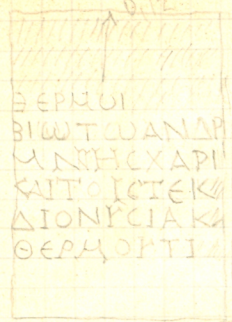 0,12
ΘΕΡΜΟΥ
ΒΙωΤωΑΝΔΡΙ
ΜΝΗΜΗCΧΑΡΙ
ΚΑΙΤΟΙCΤΕΚ
ΔΙΟΝΥCΙΑΚ
ΘΕΡΜΟΥΤΙ